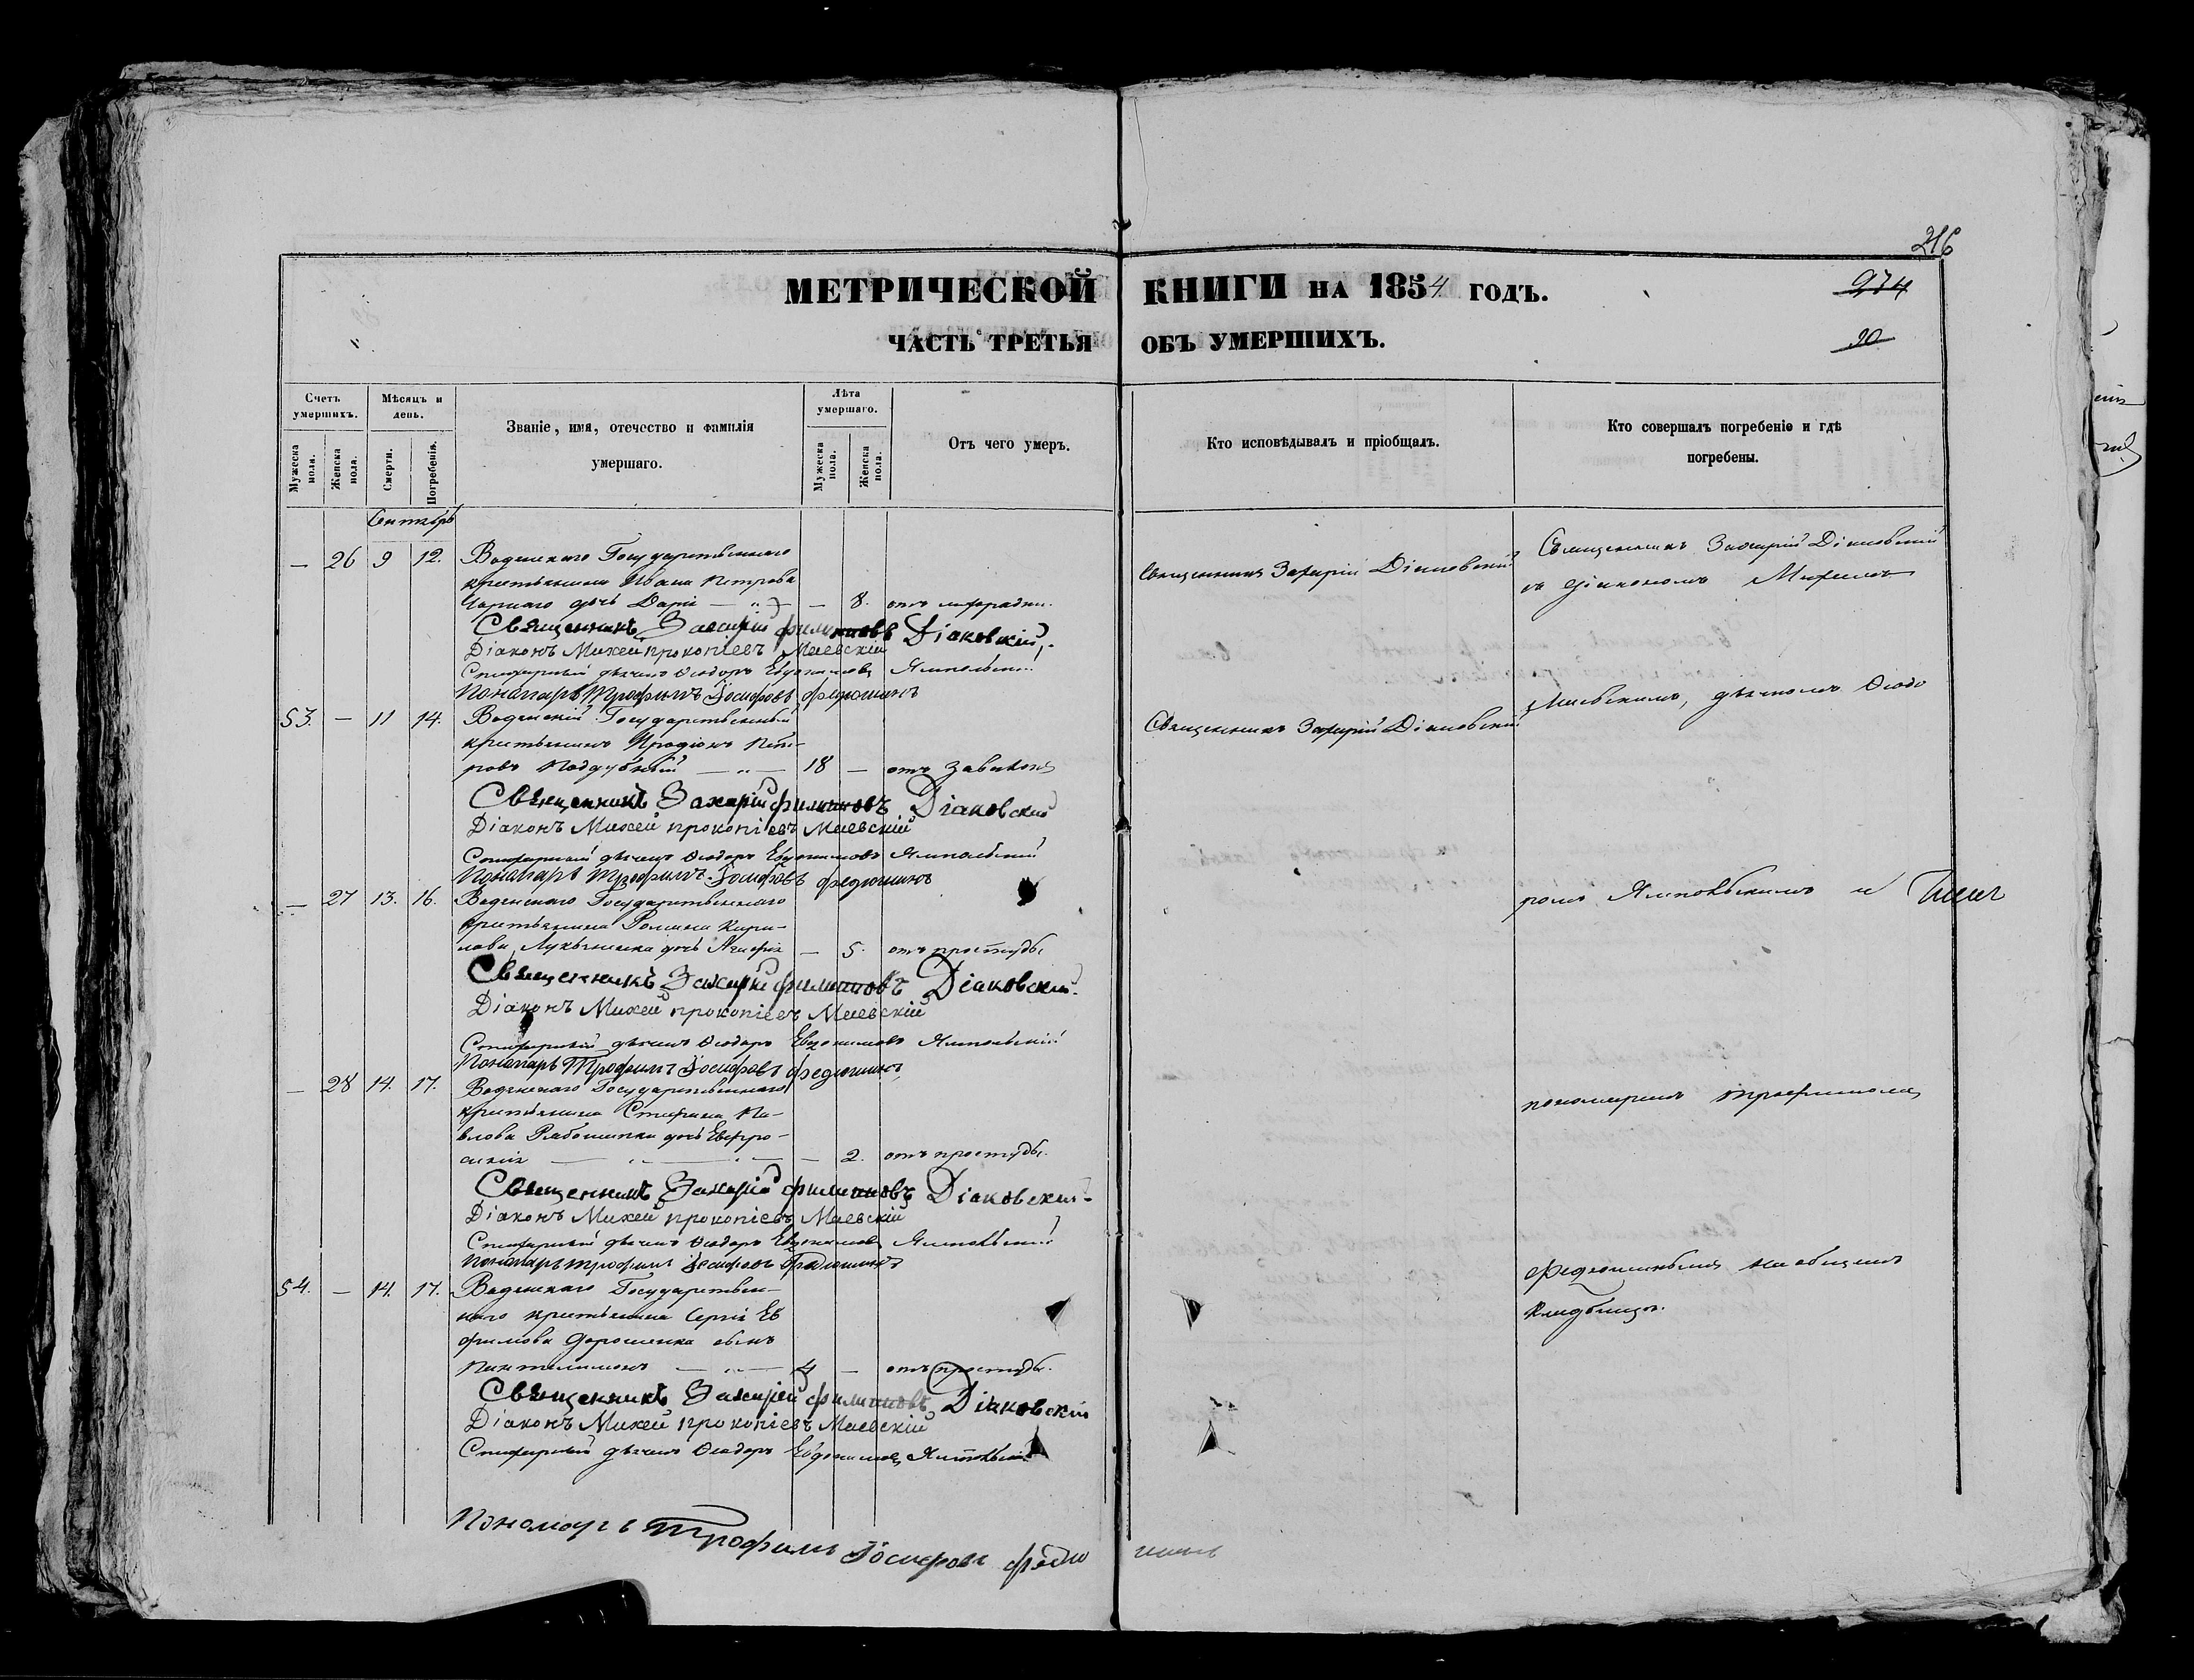 216
МЕТРИЧЕСКОЙ КНИГИ НА 1854 ГОДЪ.
974
ЧАСТЬ ТРЕТЬЯ ОБЪ УМЕРШИХЪ.
90
Счетъ умершихъ.
Мѣсяцъ и день.
Званіе, имя, отечество и фамилія умершаго.
Лѣта умершаго.
Отъ чего умеръ.
Кто исповѣдывалъ и пріобщалъ.
Кто совершалъ погребеніе и гдѣ погребены.
Мужеска пола.
Женска пола.
Смерти.
Погребенія.
Мужеска пола.
Женска пола.
Сентябрь
— 26 9 12. Государственнаго
крестьянина Ивана Петрова
Чорнаго дочь Дарія — 8. отъ лихорадки.
Священникъ Захарій Діаковскій
Священникъ Захарій Діаковскій
съ діакономъ Михеемъ
Священникъ Захарій Филиповъ Діаковскій
Діаконъ Михей Прокопіевъ Маевскій
Стихарный дьячекъ Ѳеодоръ Евдокимовъ Ямпольскій
Пономарь Трофимъ Іосифовъ Федюшинъ
53. — 11 14. Государственный
крестьянинъ Иродіонъ Пет-
ровъ Поддубный — 18 — отъ
Священникъ Захарій Діаковскій
Маевскимъ, дьячкомъ Ѳеодо
Священникъ Захарій Филиповъ Діаковскій
Діаконъ Михей Прокопіевъ Маевскій
Стихарный дьячекъ Ѳеодоръ Евдокимовъ Ямпольскій
Пономарь Трофимъ Іосифовъ Федюшинъ
— 27 13. 16. Государственнаго
крестьянина Романа Кири-
лова дочь Агафія — 5. отъ простуды
ромъ Ямпольскимъ и
Священникъ Захарій Филиповъ Діаковскій
Діаконъ Михей Прокопіевъ Маевскій
Стихарный дьячекъ Ѳеодоръ Евдокимовъ Ямпольскій
Пономарь Трофимъ Іосифовъ Федюшинъ
— 28 14. 17. Государственнаго
крестьянина Стефана Па-
влова дочь Евфро-
синія — 2. отъ простуды.
пономаремъ Трофимомъ
Священникъ Захарій Филиповъ Діаковскій
Діаконъ Михей Прокопіевъ Маевскій
Стихарный дьячекъ Ѳеодоръ Евдокимовъ Ямпольскій
Пономарь Трофимъ Іосифовъ Федюшинъ
54. — 14. 17. Государствен-
наго крестьянина Сергія Ев
фимова Дорошенка сынъ
Пантелимонъ — 4 — отъ простуды.
Федюшинымъ на общемъ
кладбищѣ.
Священникъ Захарій Филиповъ Діаковскій
Діаконъ Михей Прокопіевъ Маевскій
Стихарный дьячекъ Ѳеодоръ Евдокимовъ Ямпольскій
Пономарь Трофимъ Іосифовъ Федюшинъ